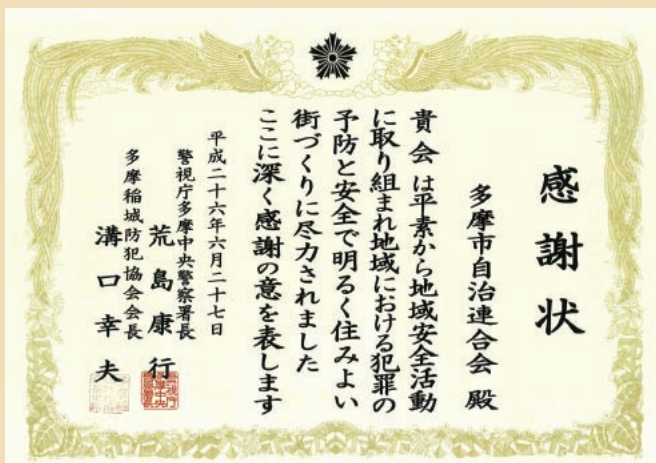 感謝状
多摩市自治連合会 殿
貴会は平素から地域安全活動
に取り組まれ地域における犯罪の
予防と安全で明るく住みよい
街づくりに尽力されました
ここに深く感謝の意を表します
平成二十六年六月二十七日
警視庁多摩中央警察署長
荒島康行
多摩稲城防犯協会会長
溝口幸夫